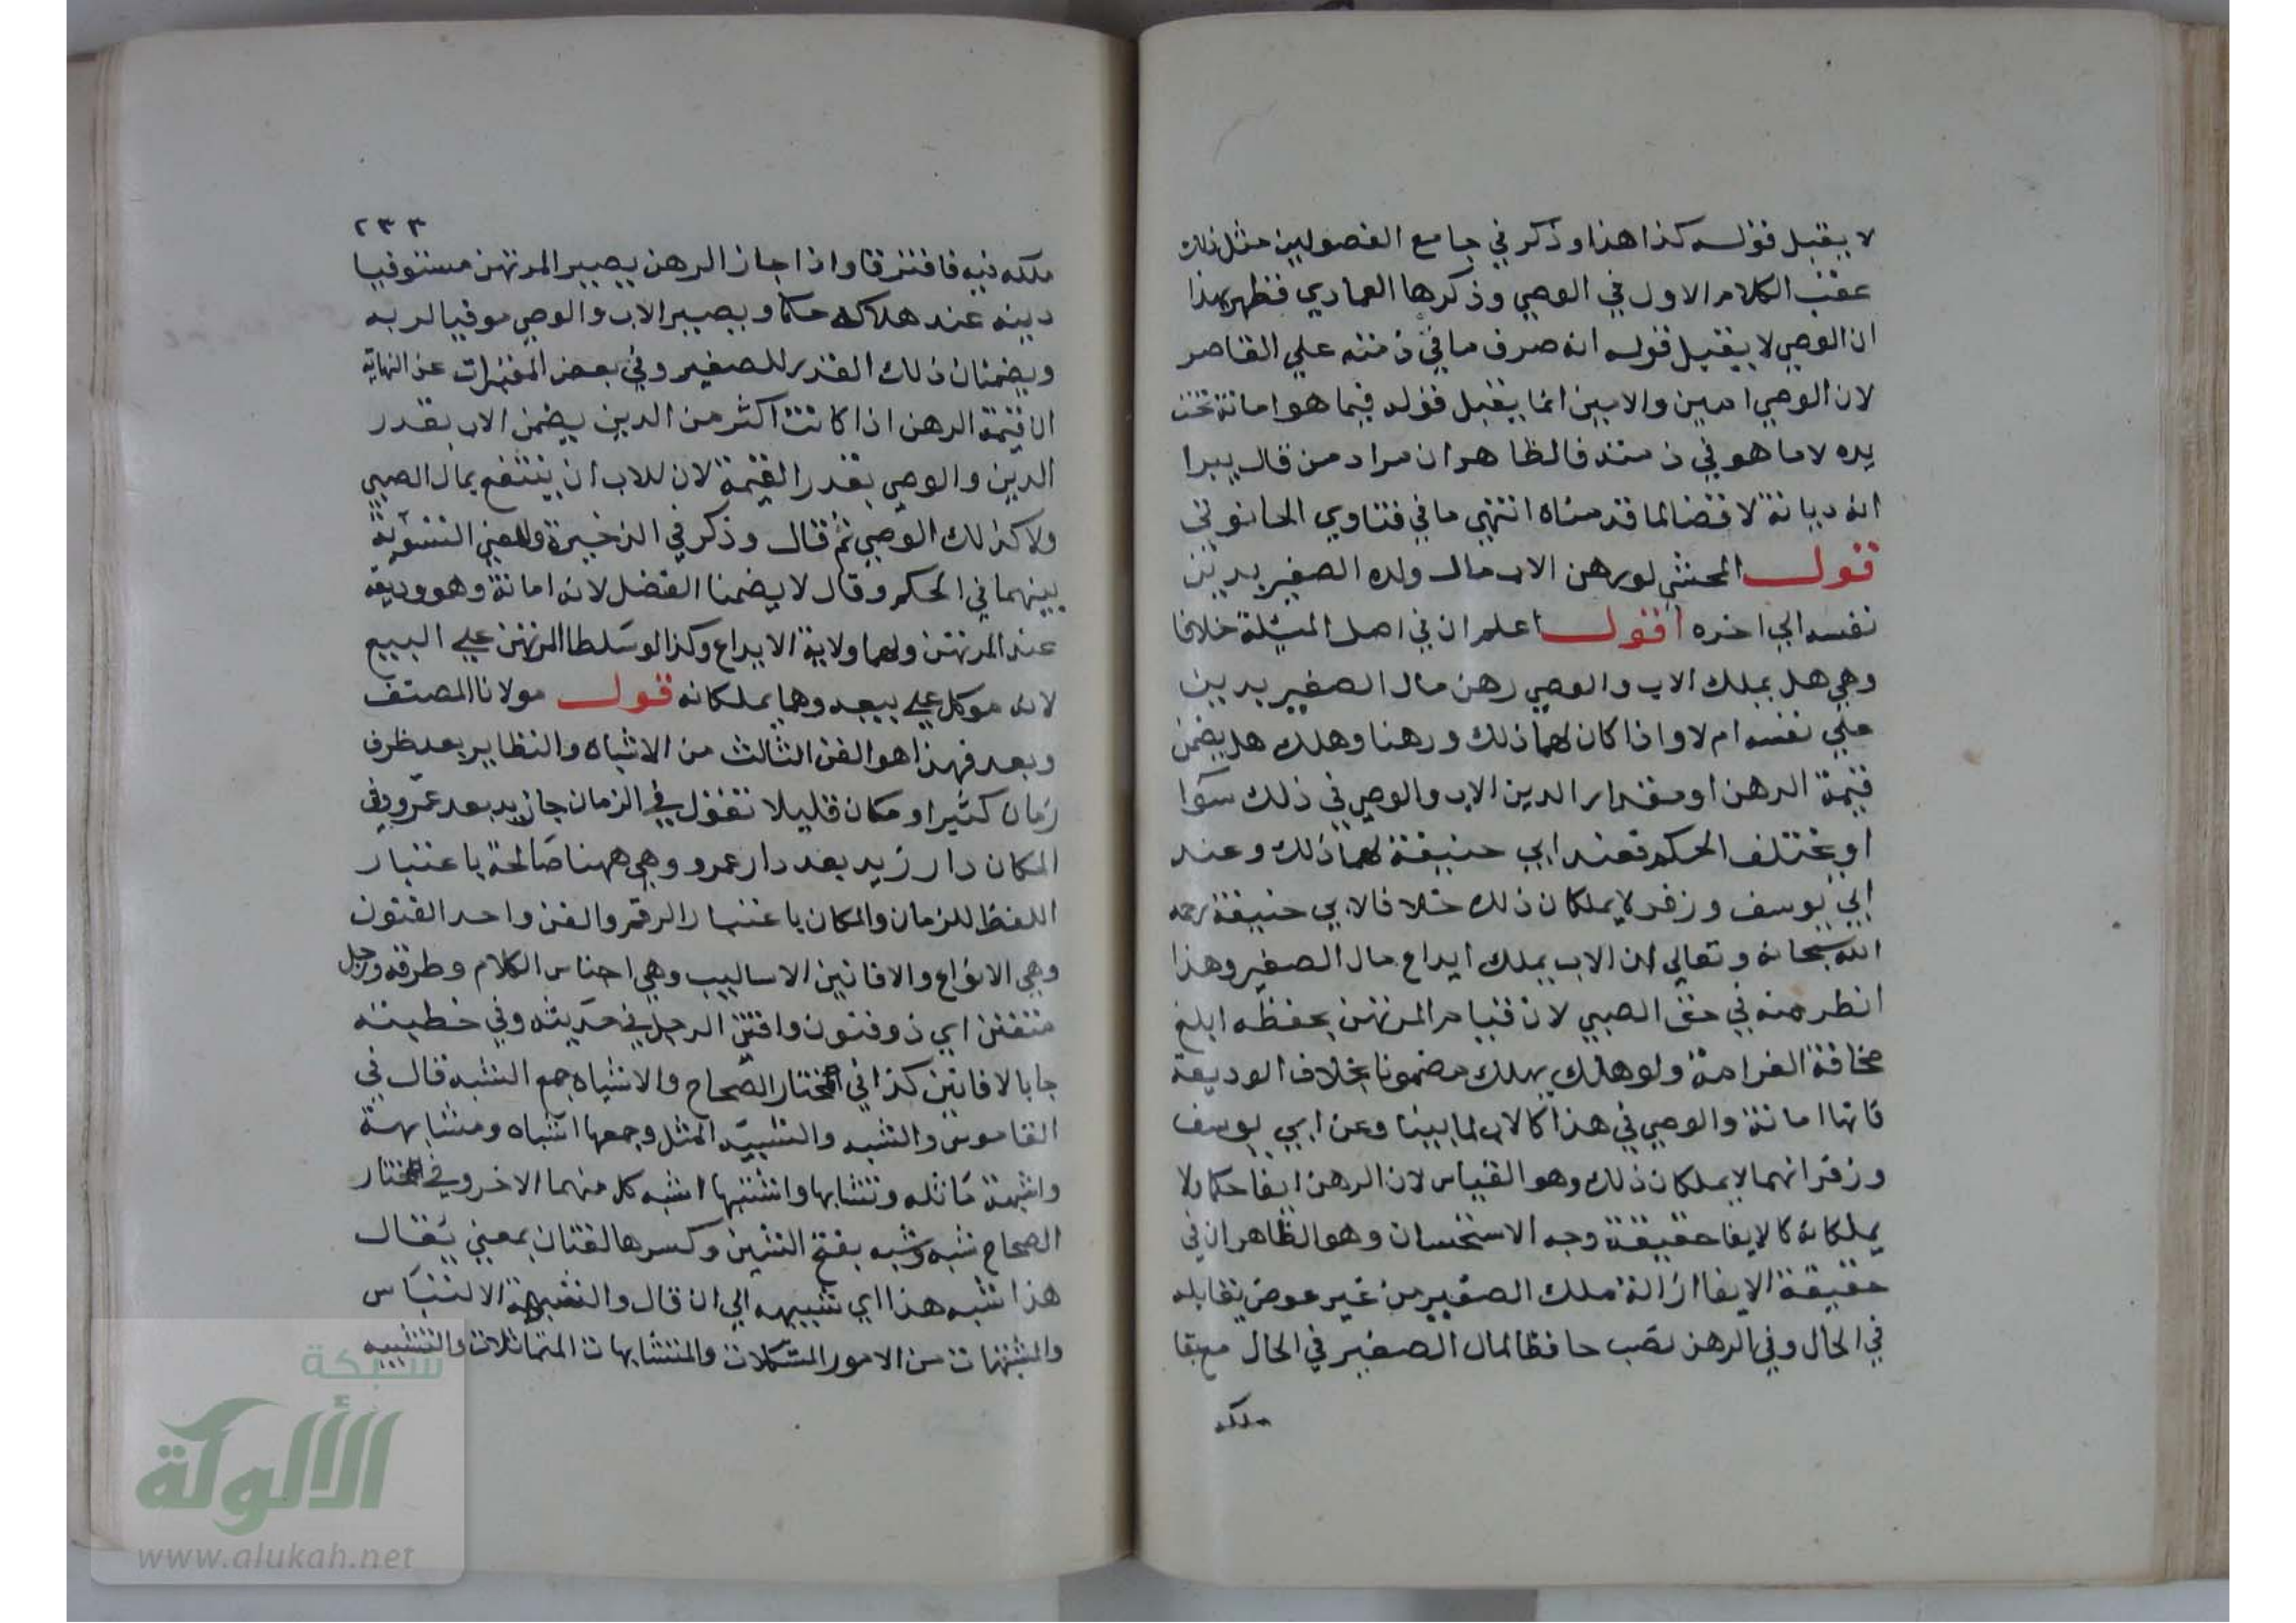 لا يقبل قوله كذا هذا وذكر في جامع الفصولين مثل ذلك
عقب الكلام الاول في الوصي وذكرها العمادي فظهر بهذا
ان الوصي لا يقبل قوله انه صرف ما في ذمته علي القاصر
لان الوصي امين والامين انما يقبل قوله فيما هو امانة تحت
يده لا ما هو في ذمته فالظاهر ان مراد من قال يبرا
انه ديانة لا قضا لما قدمناه انتهي ما في فتاوي الحانوتي
قوله المحشي لو رهن الاب مال ولده الصغير بدين
نفسه الي اخره اقول اعلم ان في اصل المسئلة خلافا
وهي هل يملك الاب والوصي رهن مال الصغير بدين
علي نفسه ام لا واذا كان لهما ذلك ورهنا وهلك هل يضمن
قيمة الرهن او مقدار الدين الاب والوصي في ذلك سوا
او يختلف الحكم فعند ابي حنيفة لهما ذلك وعند
ابي يوسف وزفر لا يملكان ذلك خلافا لابي حنيفة رحمه
الله سبحانه وتعالي لان الاب يملك ايداع مال الصغير وهذا
انظر منه في حق الصبي لان قيام المرتهن بحفظه ابلغ
مخافة الغرامة ولو هلك يهلك مضمونا بخلاف الوديعة
فانها امانة والوصي في هذا كالاب لما بينا وعن ابي يوسف
وزفر انهما لا يملكان ذلك وهو القياس لان الرهن ايفا حكما ولا
يملكانه كالايفا حقيقة وجه الاستحسان وهو الظاهر ان في
حقيقة الايفا ازالة ملك الصغير من غير عوض يقابله
في الحال وفي الرهن نصب حافظا لمال الصغير في الحال مع بقا
ملكه
٢٣٣
ملكه فيه فافترقا واذا جاز الرهن يصير المرتهن مستوفيا
دينه عند هلاكه حكما ويصير الاب والوصي موفيا له به
ويضمنان ذلك القدر للصغير وفي بعض المعتبرات عن النهاية
ان قيمة الرهن اذا كانت اكثر من الدين يضمن الاب بقدر
الدين والوصي بقدر القيمة لان للاب ان ينتفع بمال الصبي
ولا كذلك الوصي ثم قال وذكر في الذخيرة والمغني التسوية
بينهما في الحكم وقال لا يضمنا الفضل لانه امانة وهو وديعة
عند المرتهن ولهما ولاية الايداع وكذا لو سلطا المرتهن علي البيع
لانه موكل علي بيعه وهما يملكانه قوله مولانا المصنف
وبعد فهذا هو الفن الثالث من الاشباه والنظاير بعد ظرف
زمان كثيرا ومكان قليلا تقول في الزمان جا زيد بعد عمرو وفي
المكان دار زيد بعد دار عمرو وهي ههنا صالحة باعتبار
اللفظ للزمان والمكان باعتبار الرقم والفن واحد الفنون
وهي الانواع والافانين الاساليب وهي اجناس الكلام وطرقه ورجل
متفنن اي ذو فنون وافتن الرجل في حديثه وفي خطبته
جا بالافانين كذا في المختار الصحاح والاشباه جمع الشبه قال في
القاموس والشبه والتشبيه المثل وجمعها اشباه ومشابهة
واشبهه ماثله وتشابها واشتبها اشبه كل منهما الاخر وفي المختار
الصحاح شبه وشبه بفتح الشين وكسرها لغتان بمعني يقال
هذا شبه هذا اي شبيهه الي ان قال والشبهة الالتباس
والمشتبهات من الامور المشكلات والمتشابهات المتماثلات والتشبيه
شبكة
الألوكة
www.alukah.net